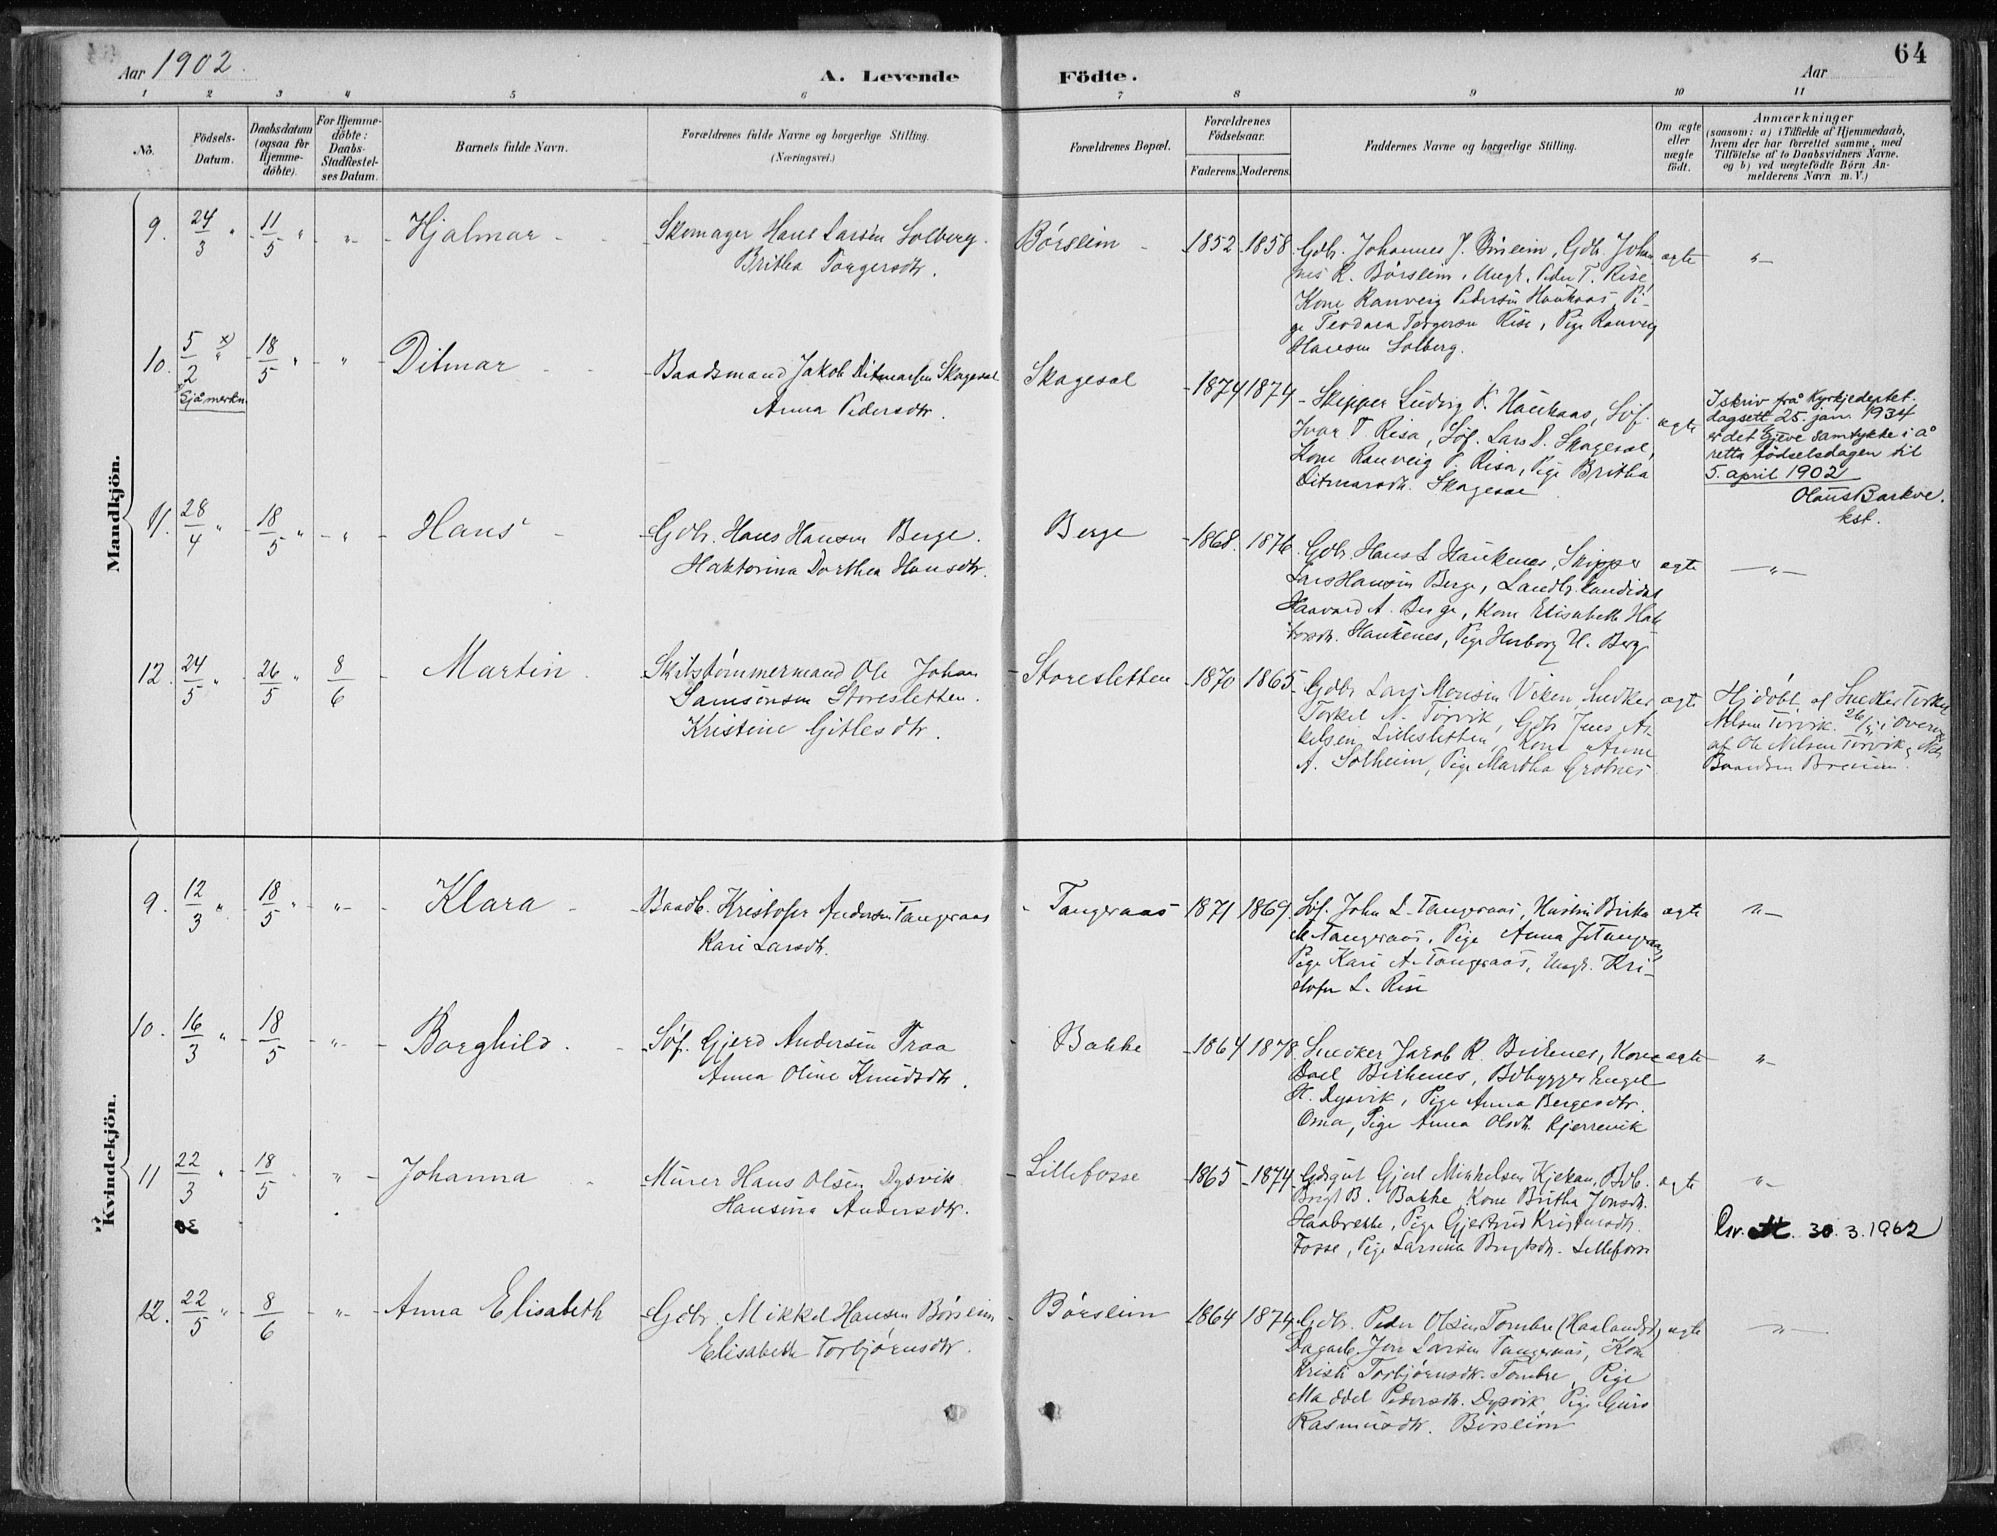 Aar 1902. A. Levende Födte. Aar 64
1 2 3 4 5 6 7 8 9 10 11
No.
Födsels-
Datum.
Daabsdatum
(ogsaa for
Hjemme-
döbte).
For Hjemme-
döbte:
Daabs-
Stadfæstel-
ses Datum.
Barnets fulde Navn.
Forældrenes fulde Navne og borgerlige Stilling.
(Næringsvei.)
Forældrenes Bopæl.
Forældrenes
Födselsaar.
Faderens. Moderens.
Faddernes Navne og borgerlige Stilling.
Om ægte
eller
uægte
födt.
Anmærkninger
(saasom: a) i Tilfælde af Hjemmedaab,
hvem der har forrettet samme, med
Tilföielse af to Daabsvidners Navne.
og b) ved uægtefödte Börn An-
melderens Navn m. V.)
Mandkjön.
9. 24/3 " 11/5 " " Hjalmar
Skomager Hans Larsen Solberg.
Britha Torgersdtr.
Børsleim 1852 1858
Gdbr. Johannes J. Børsleim, Gdbr. Johan
nes R. Børsleim, Ungk. Peder T. Rise,
Kone Ranveig Pedersen Haukaas, Pi-
ge Teodara Torgersen Rise, Pige Ranveig
Hansen Solberg.
ægte "
10. 5/2 x) 18/5 " " Ditmar
Sjå merkn.
Baadsmand Jakob Ditmarsen Skagesal
Anna Pedersdtr.
Skagesal 1874 1874
Skipper Ludvig P. Haukaas, Søf.
Ivar P. Risa, Søf. Lars D. Skagesal,
Kone Ranveig P. Risa, Pige Britha
Ditmarsdtr. Skagesal
ægte
I skriv frå Kyrkjedeptet.
dagsett 25. jan. 1934
er det gjeve samtykke i å
retta födselsdagen til
5. april 1902
Olaus Barkve.
kst.
11. 28/4 " 18/5 " " Hans
Gdbr. Hans Hansen Berge.
Haktorina Dorthea Hansdtr.
Berge 1868. 1876.
Gdbr. Hans S Haukenes, Skipper
Lars Hansen Berge, Landbr. Candidat
Haavard A. Berge, Kone Elisabeth Hak
torsdtr. Haukenes, Pige Herborg H. Berge
ægte "
12. 24/5 " 26/5 " 8/6 Martin
Skibstømmermand Ole Johan
Samsonsen Storesletten.
Kristine Gitlesdtr.
Storesletten 1870 1865
Gdbr Lars Monsen Viken, Snedker
Torkel N. Tørvik, Gdbr Jens As
lelsen Lillesletten, Kone Anne
A. Solheim, Pige Martha Grotnes
ægte
Hjdøbt af Snedker Torkel
Nelsen Tørvik 26/5 i Overvær
af Ole Nilsen Tørvik, Nils
Baardsen
Kvindekjön.
9. 12/3 " 18/5 " " Klara
Baadb. Kristofer Andersen Tangeraas
Kari Larsdtr.
Tangeraas 1871 1869.
Søf. John L. Tangeraas, Hustru Birtha
M. Tangeraas, Pige Anna J. Tangeraas,
Pige Kari A. Tangeraas, Ungk. Kri-
stofer L. Rise
ægte "
10. 16/3 " 18/5 " Borghild.
Søf. Gjerd Andersen Traa
Anna Oline Knudsdtr.
Bakke 1864 1878
Snedker Jakob R. Birkenes, Kone
Boel Birkenes, Bdbygger Engel
H. Dysvik, Pige Anna Bergesdtr.
Oma, Pige Anna Olsdtr. Kjerrevik
ægte "
11 22/3 " 18/5 " " Johanna
Murer Hans Olsen Dysvik
Hansina Andersdtr.
Lillefosse 1865 1874
Gdsgut Gjert Mikkelsen Kjekan, Bdb.
Brigt B. Bakke, Kone Britha Jonsdtr.
Haabrekke, Pige Gjertrud Kristensdtr.
Fosse, Pige Larsina Brigtsdtr. Lillefosse
ægte "
30.3.1962
12. 22/5 " 8/6 " Anna Elisabeth
Gdbr. Mikkel Hansen Børsleim
Elisabeth Torbjørnsdtr.
Børsleim 1864 1874
Gdbr. Peder Olsen Tombre (Haalandsd)
Dagarb. Jon Larsen Tangeraas, Kone
Kristi Torbjørnsdtr. Tombre, Pige
Maddel Pedersdtr. Dysvik, Pige Guro
Rasmusdtr. Børsleim
ægte "